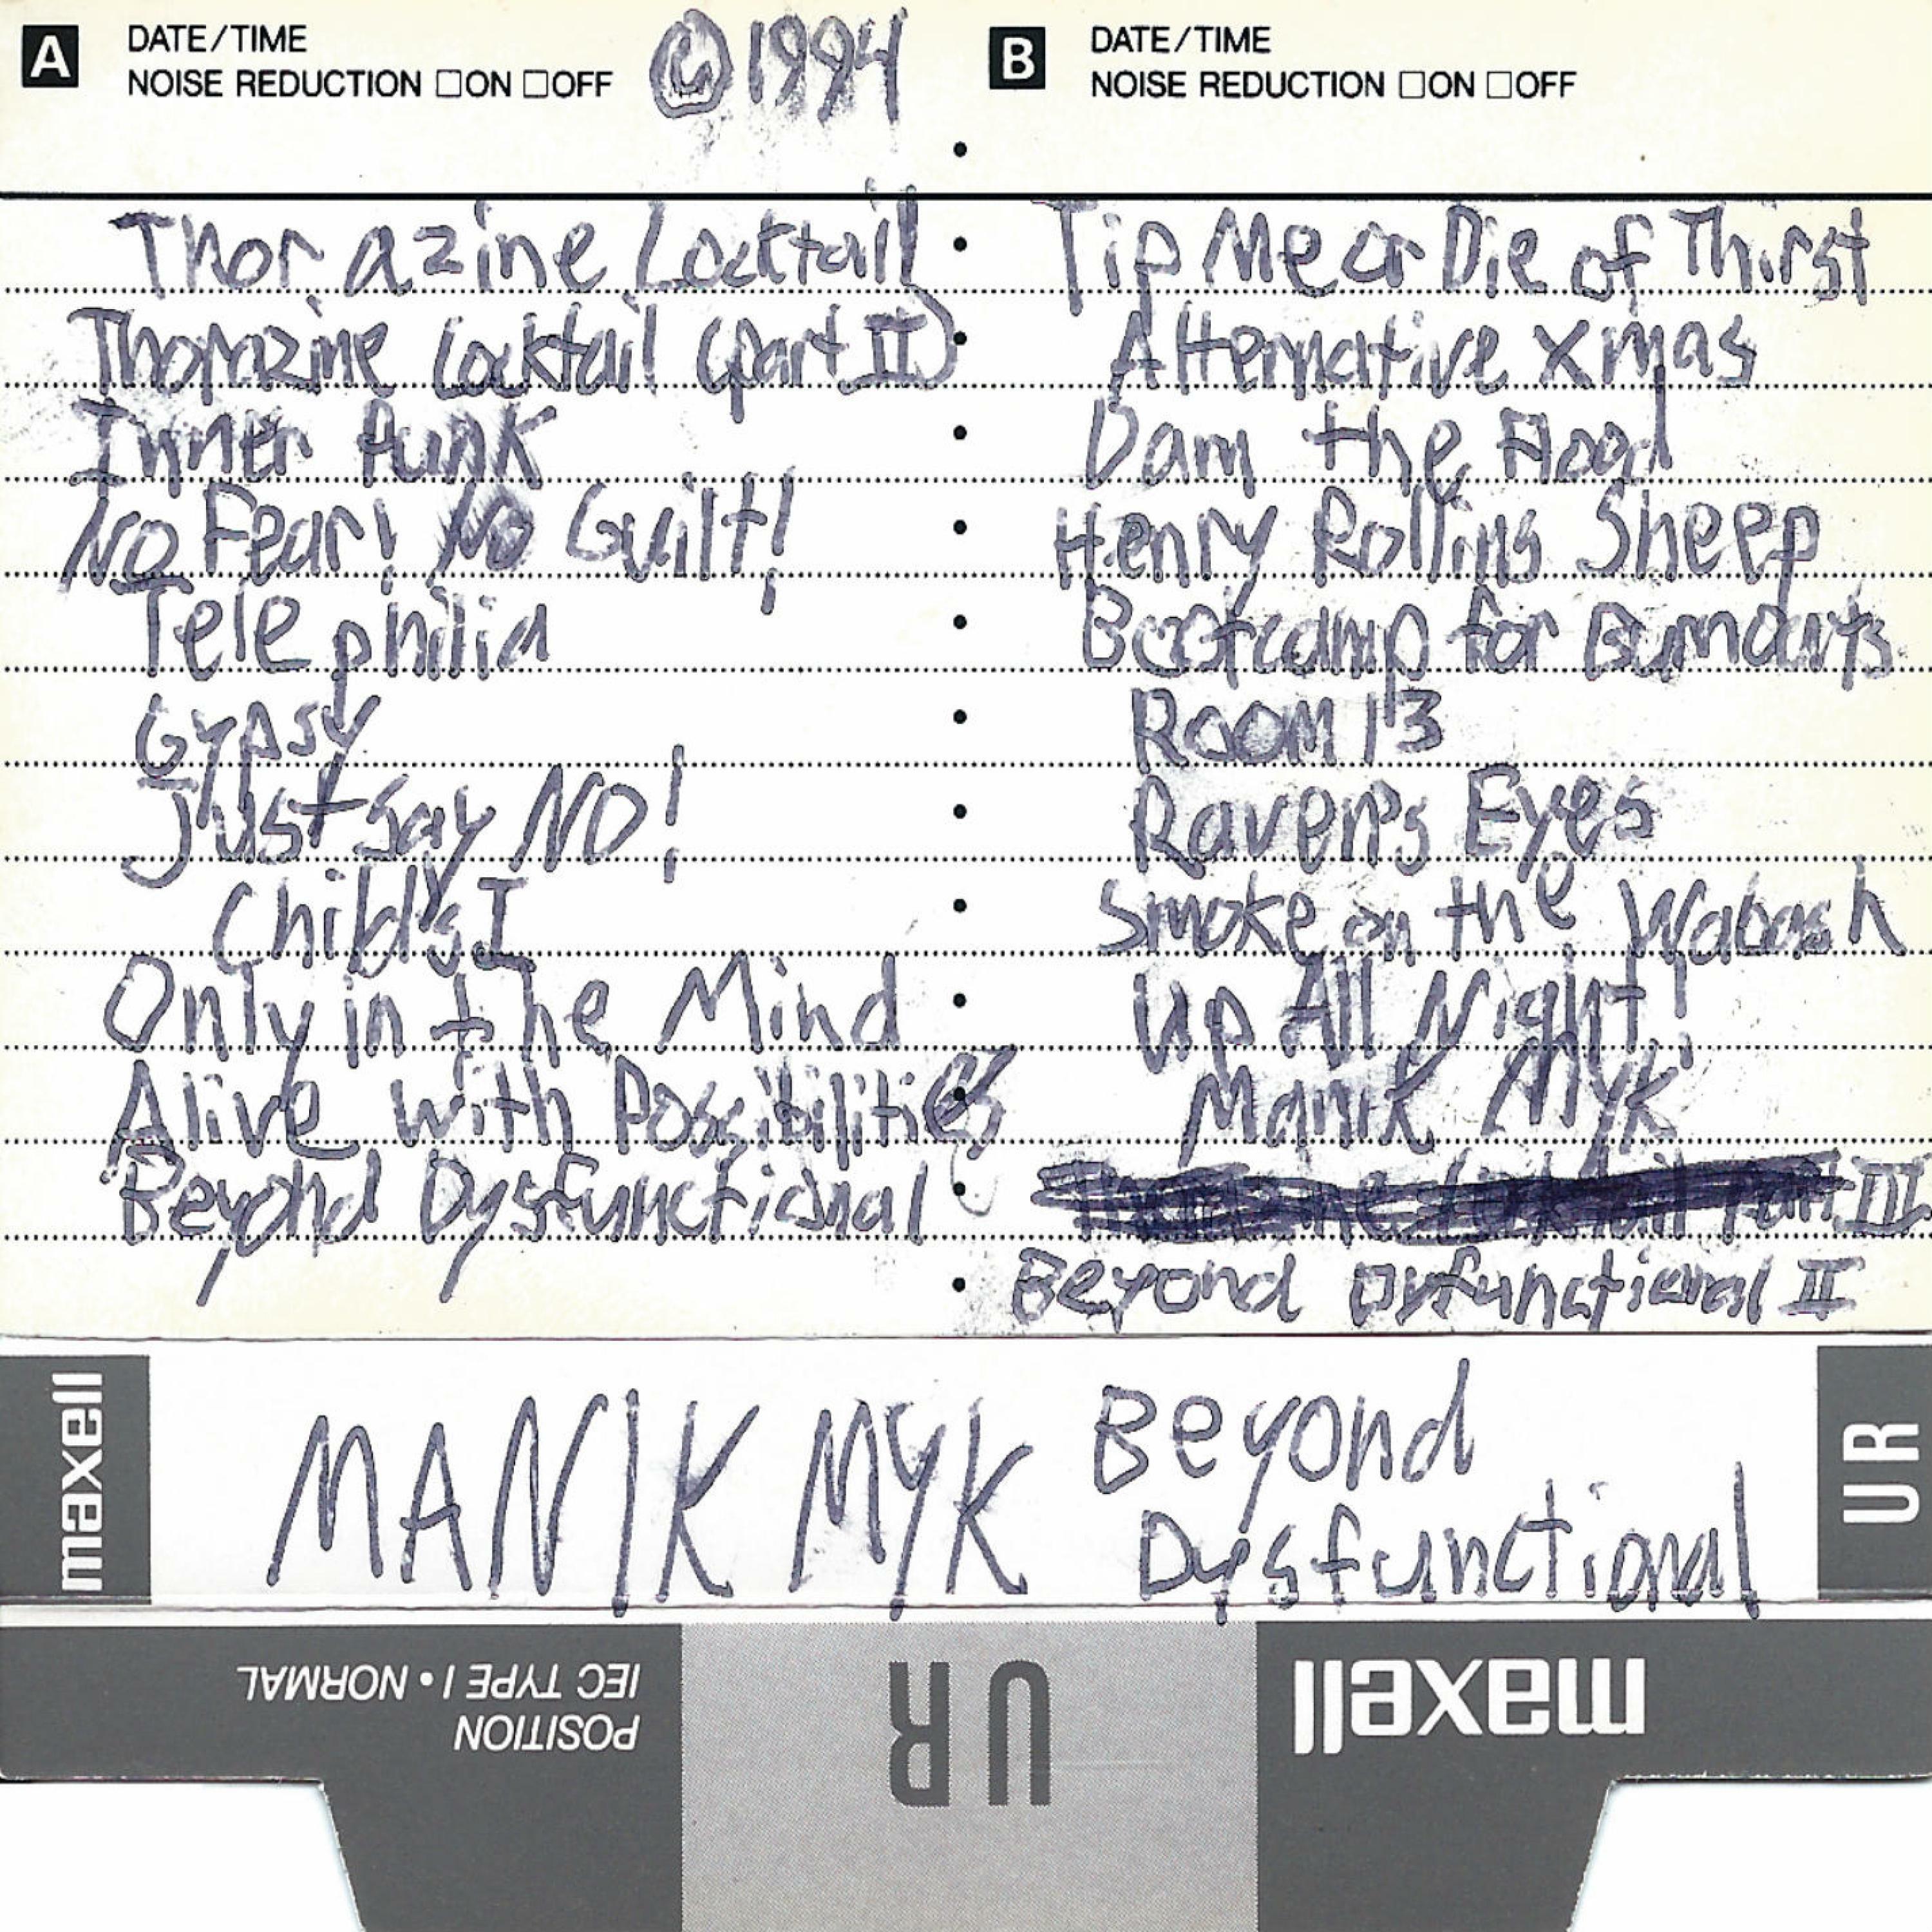 A DATE/TIME
NOISE REDUCTION □ON □OFF
© 1994
B DATE/TIME
NOISE REDUCTION □ON □OFF
Thorazine Cocktail
Thorazine Cocktail (part II)
Inner Punk
No Fear! No Guilt!
Telephilia
Gypsy
Just Say NO!
Child's I
Only in the Mind
Alive with Possibilities
Beyond Dysfunctional
Tip Me or Die of Thirst
Alternative Xmas
Dam the Flood
Henry Rollins Sheep
Bootcamp for
Room 13
Raven's Eyes
Smoke on the Wabash
Up All Night!
Manik Myk
III
Beyond Dyfunctional II
maxell
MANIK MYK
Beyond
Dysfunctional
UR
maxell
UR
POSITION
IEC TYPE I • NORMAL